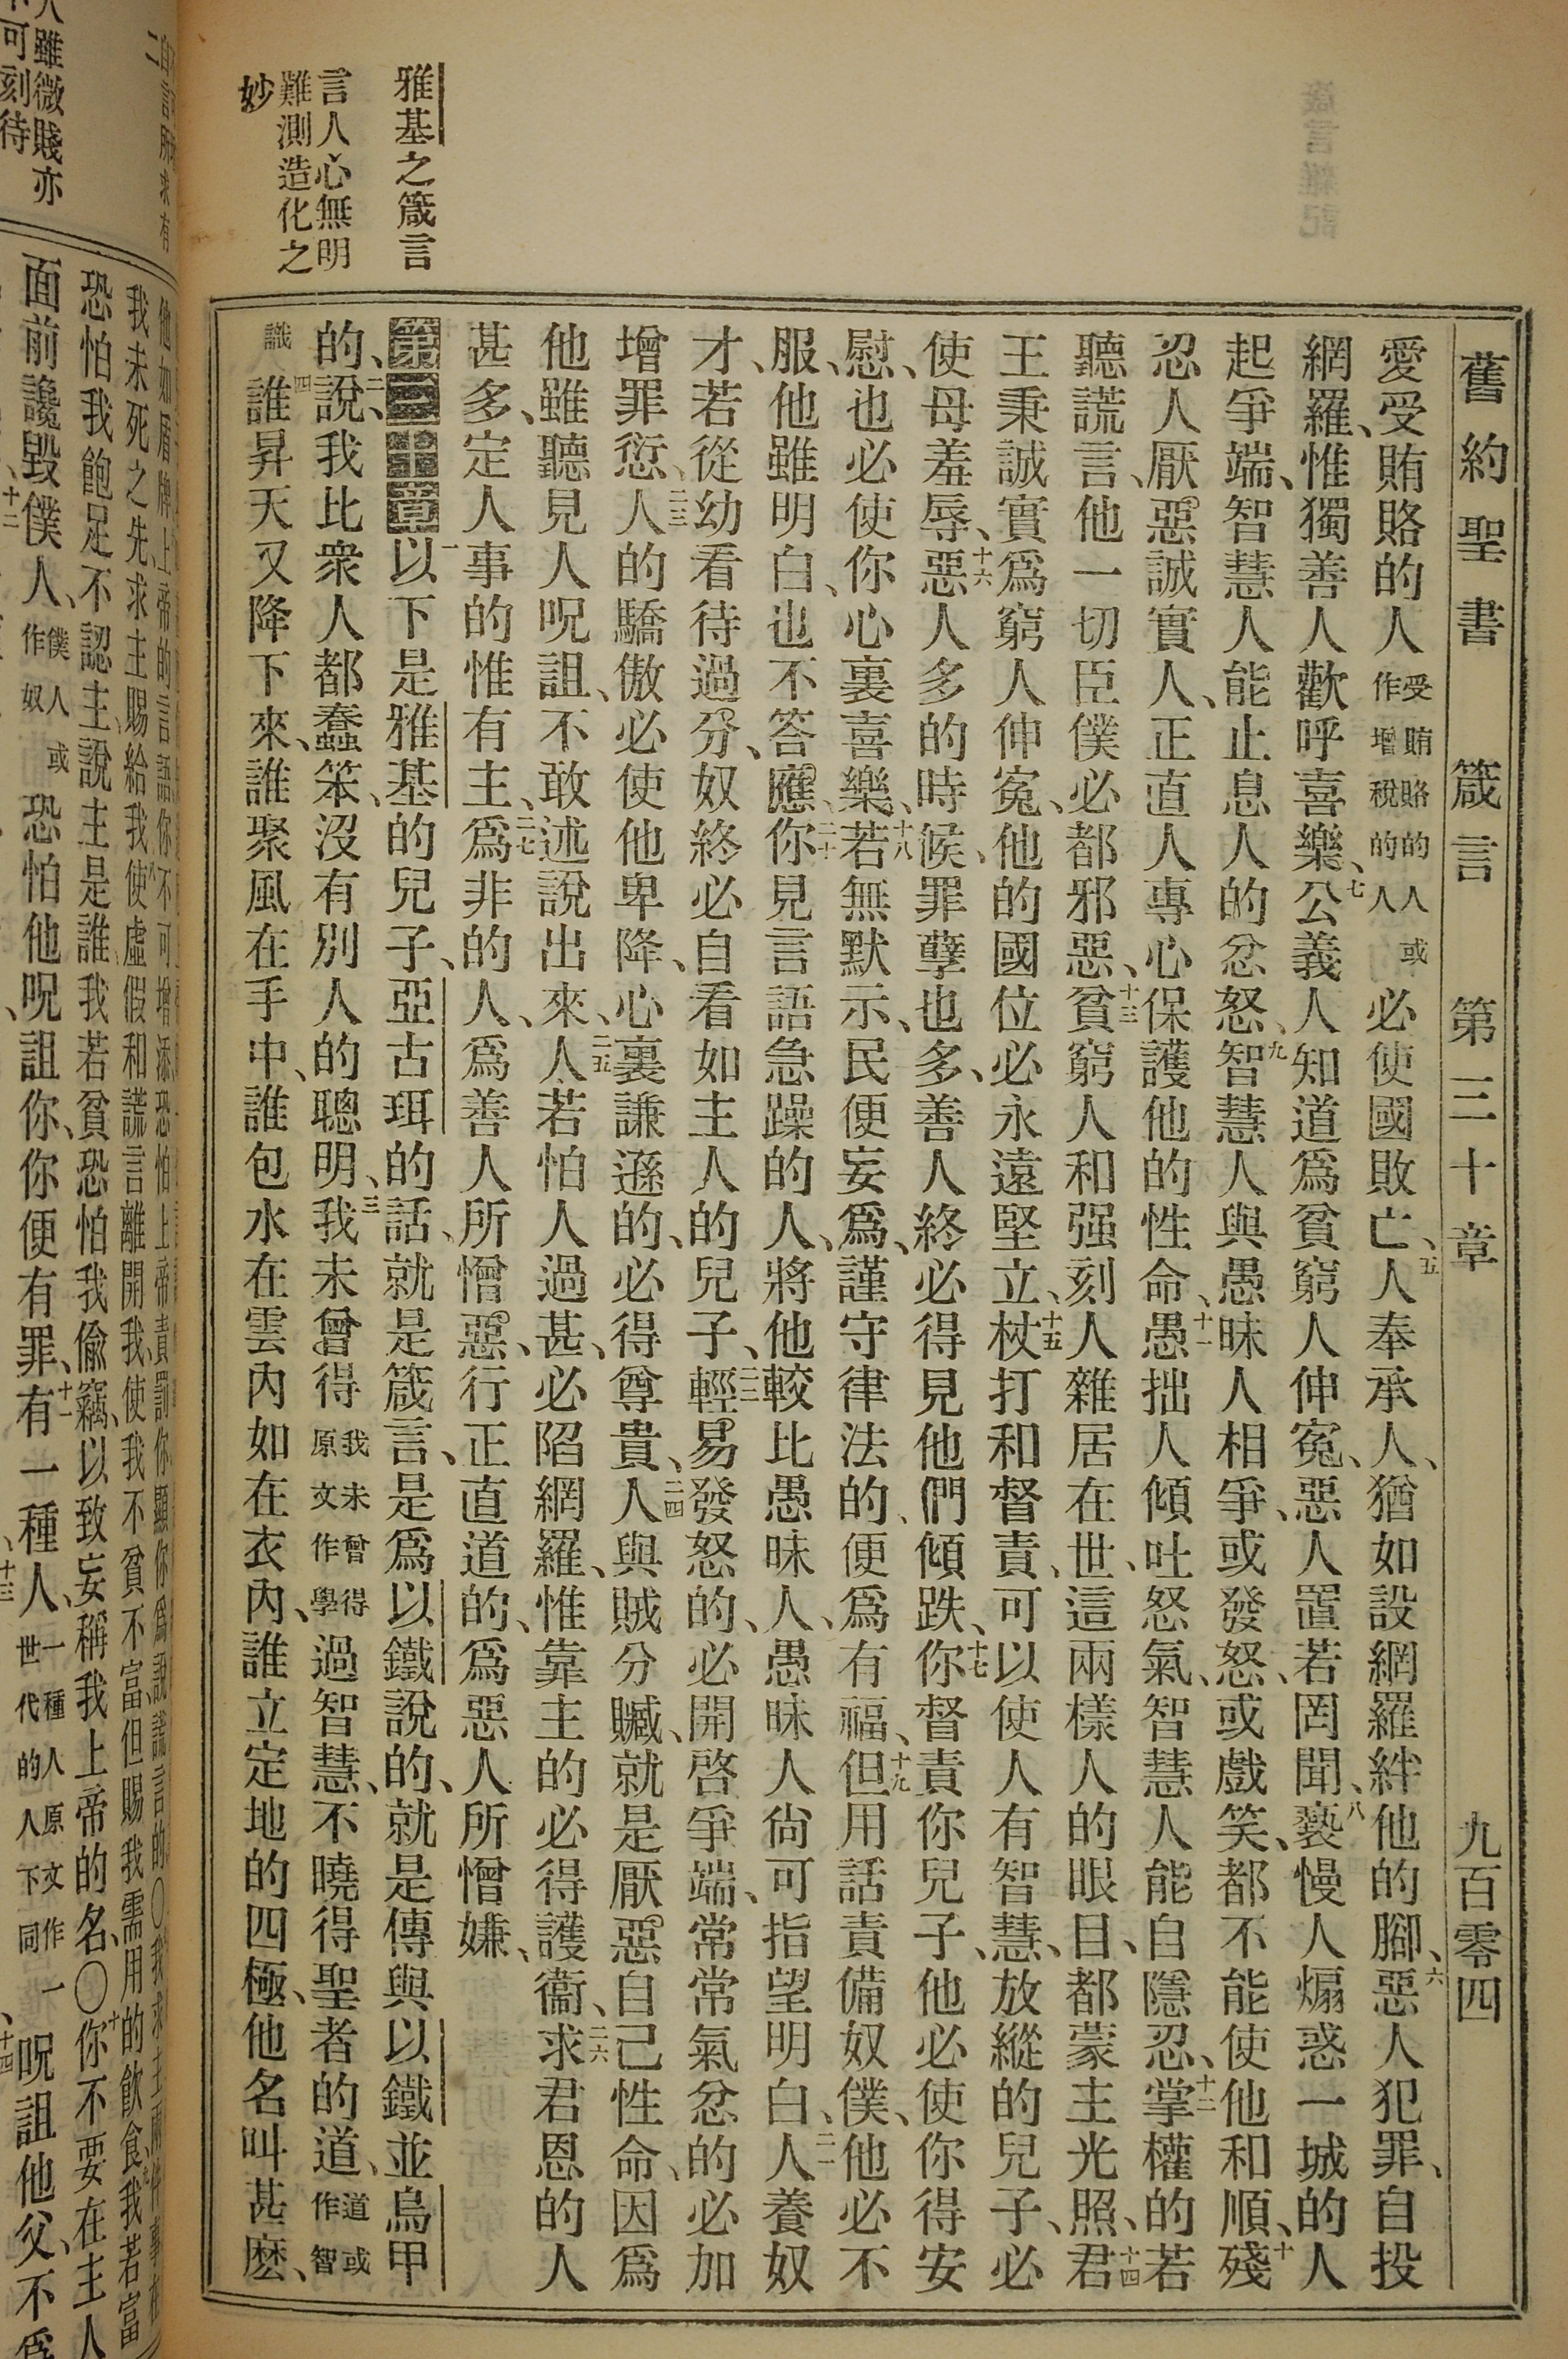 舊約聖書 箴言 第三十章 九百零四
愛受賄賂的人受賄賂的人或作增稅的人必使國敗亡、五人奉承人、猶如設網羅絆他的腳、六惡人犯罪、自投
網羅、惟獨善人歡呼喜樂、七公義人知道爲貧窮人伸冤、惡人置若罔聞、八褻慢人煽惑一城的人
起爭端、智慧人能止息人的忿怒、九智慧人與愚昧人相爭、或發怒、或戲笑、都不能使他和順、十殘
忍人厭惡誠實人、正直人專心保護他的性命、十一愚拙人傾吐怒氣、智慧人能自隱忍、十二掌權的若
聽謊言、他一切臣僕必都邪惡、十三貧窮人和强刻人雜居在世、這兩樣人的眼目、都蒙主光照、十四君
王秉誠實爲窮人伸冤、他的國位必永遠堅立、十五杖打和督責、可以使人有智慧、放縱的兒子、必
使母羞辱、十六惡人多的時候、罪孽也多、善人終必得見他們傾跌、十七你督責你兒子、他必使你得安
慰、也必使你心裏喜樂、十八若無默示、民便妄爲、謹守律法的、便爲有福、十九但用話責備奴僕、他必不
服、他雖明白、也不答應、二十你見言語急躁的人、將他較比愚昧人、愚昧人尙可指望明白、二一人養奴
才若從幼看待過分、奴終必自看如主人的兒子、二二輕易發怒的、必開啓爭端、常常氣忿的必加
增罪愆、二三人的驕傲必使他卑降、心裏謙遜的、必得尊貴、二四人與賊分贓、就是厭惡自己性命、因爲
他雖聽見人呪詛、不敢述說出來、二五人若怕人過甚、必陷網羅、惟靠主的必得護衞、二六求君恩的人
甚多、定人事的惟有主、二七爲非的人、爲善人所憎惡、行正直道的、爲惡人所憎嫌、
第三十章 一以下是雅基的兒子、亞古珥的話、就是箴言、是爲以鐵說的、就是傳與以鐵並烏甲
的、二說、我比衆人都蠢笨、沒有別人的聰明、三我未曾得我未曾得原文作學過智慧、不曉得聖者的道、道或作智
識四誰昇天又降下來、誰聚風在手中、誰包水在雲內如在衣內、誰立定地的四極、他名叫甚麽、
雅基之箴言
言人心無明
難測造化之
妙
人雖微賤亦
可刻待
恐怕我飽足不認主、說主是誰、我若貧恐怕我偸竊、以致妄稱我上帝的名、〇十你不要在主人
面前讒毀僕人、僕人或作奴恐怕他呪詛你、你便有罪、十一有一種人、一種人原文作一世代的人下同呪詛他父、不爲